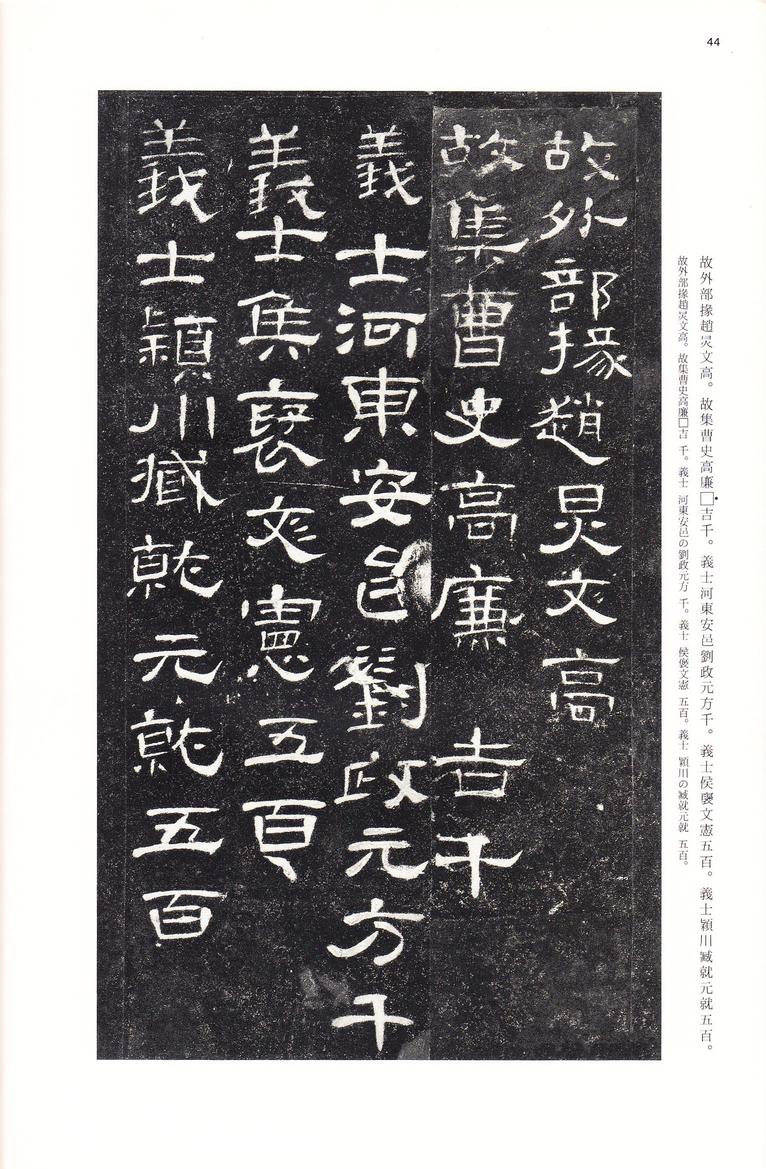 44
故外部掾趙炅文高。故集曹史高廉□吉千。義士河東安邑劉政元方千。義士侯襃文憲五百。義士潁川臧就元就五百。
故外部掾趙炅文高。故集曹史高廉□吉 千。義士 河東安邑の劉政元方 千。義士 侯褒文憲 五百。義士 潁川の臧就元就 五百。
故外部掾趙炅文高
故集曹史高廉 吉千
義士河東安邑劉政元方千
義士侯襃文憲五百
義士潁川臧就元就五百